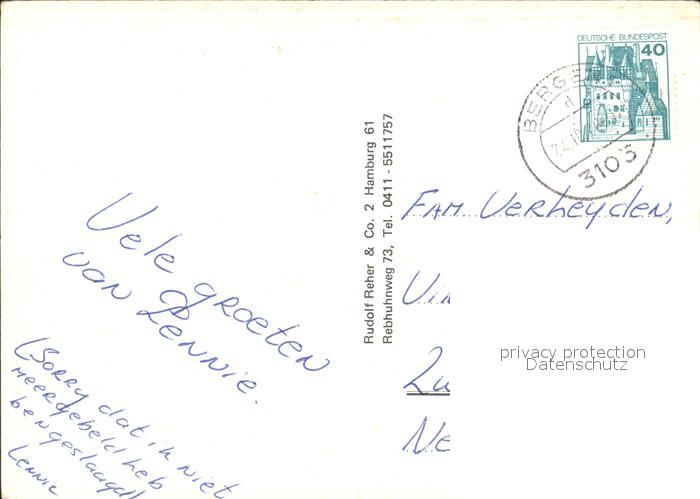 DEUTSCHE BUNDESPOST
40
BERGE
3103
Rudolf Reher & Co. 2 Hamburg 61
Rebhuhnweg 73, Tel. 0411 - 5511757
FAM Verheyden,
Vele groeten
van Lennie.
(Sorry dat ik niet
meer gebeld heb
ben geslaagd!!
Lennie
privacy protection
Datenschutz